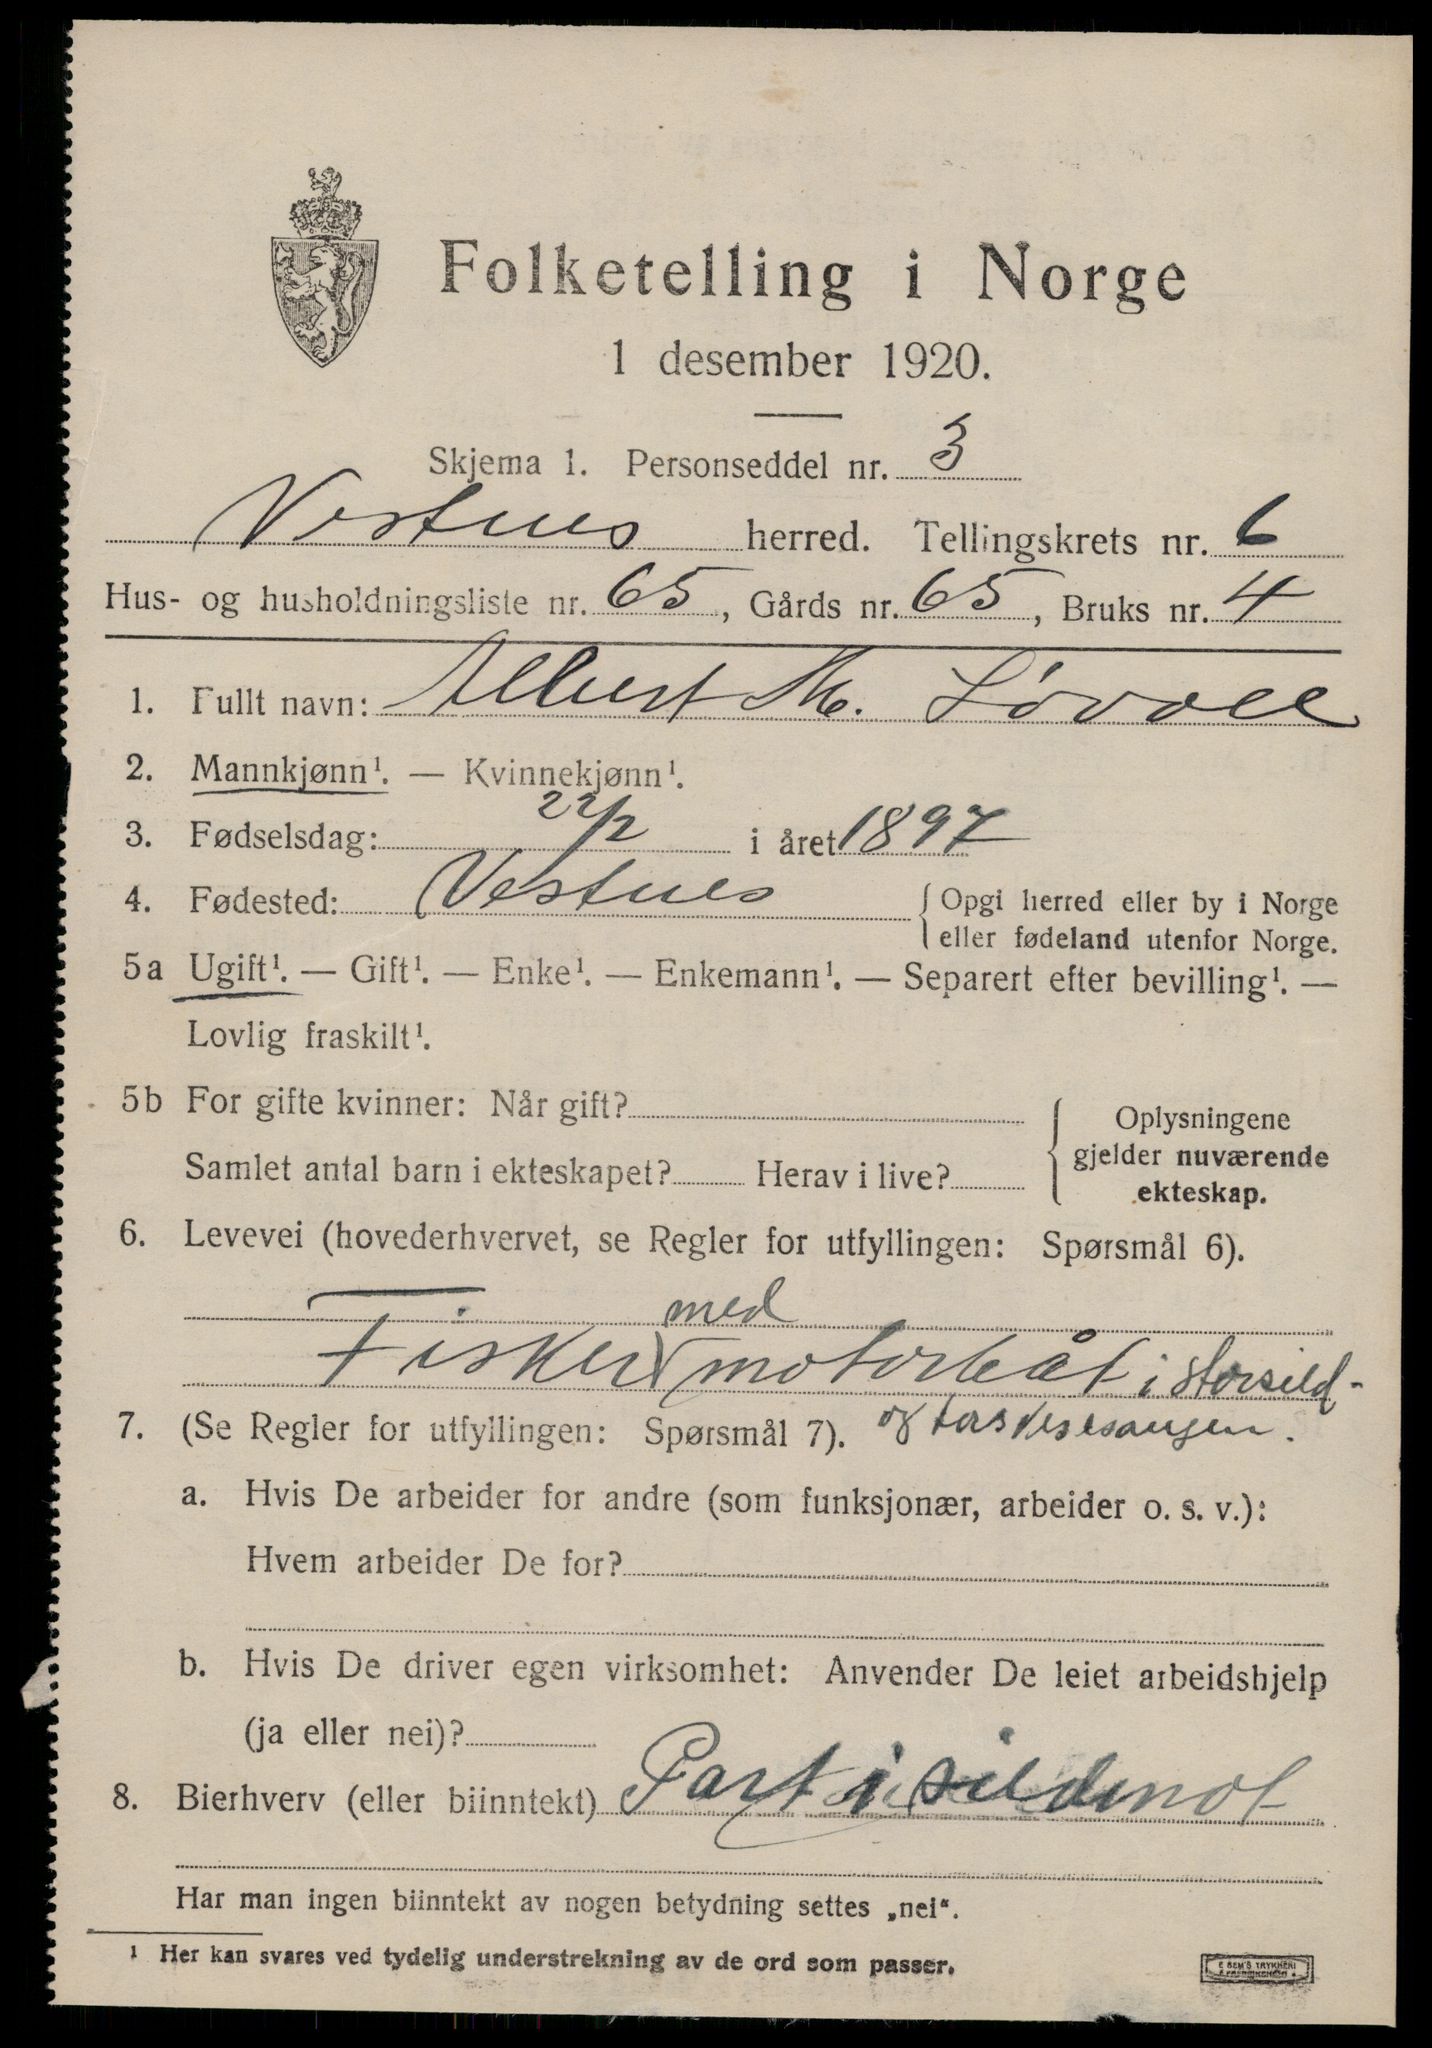 Folketelling i Norge
1 desember 1920.
Skjema 1. Personseddel nr. 3
Vestnes herred. Tellingskrets nr. 6
Hus- og husholdningsliste nr. 65, Gårds nr. 65, Bruks nr. 4
1. Fullt navn: Albert M. Løvoll
2. Mannkjønn¹. — Kvinnekjønn¹.
3. Fødselsdag: 22/2 i året 1897
4. Fødested: Vestnes { Opgi herred eller by i Norge
eller fødeland utenfor Norge.
5a Ugift¹. — Gift¹. — Enke¹. — Enkemann¹. — Separert efter bevilling¹. —
Lovlig fraskilt¹.
5b For gifte kvinner: Når gift?
Samlet antal barn i ekteskapet? Herav i live?
{ Oplysningene
gjelder nuværende
ekteskap.
6. Levevei (hovederhvervet, se Regler for utfyllingen: Spørsmål 6).
med
Fisker motorbåt i storsild-
7. (Se Regler for utfyllingen: Spørsmål 7). og torskesesongen.
a. Hvis De arbeider for andre (som funksjonær, arbeider o. s. v.):
Hvem arbeider De for?
b. Hvis De driver egen virksomhet: Anvender De leiet arbeidshjelp
(ja eller nei)?
8. Bierhverv (eller biinntekt) Part i sildenot
Har man ingen biinntekt av nogen betydning settes „nei“.
¹ Her kan svares ved tydelig understrekning av de ord som passer.